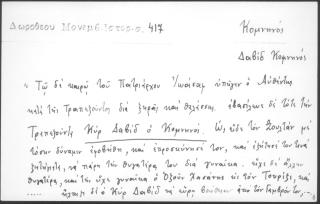 Δωροθέου Μονεμβ. Ἱστορ. σ. 417
Κομνηνός
Δαβὶδ Κομνηνός
"Τῷ δὲ καιρῷ τοῦ Πατριάρχου Ἰωάσαφ ὑπῆγεν ὁ Αὐθέντης
κατὰ τῆς Τραπεζοῦντος διὰ ξηρᾶς καὶ θαλάσσης. ἐβασίλευε δὲ τότε τὴν
Τραπεζοῦντα Κὺρ Δαβὶδ ὁ Κομνηνός. Ὡς εἶδε τὸν Σουλτὰν μὲ
τόσην δύναμιν ἐφοβήθη, καὶ ἐπροσκύνησέ τον, καὶ
ζητήματα, νὰ πάρῃ τὴν θυγατέρα του διὰ γυναῖκα. εἶχε δὲ ἄλλην
θυγατέρα, καὶ τὴν εἶχε γυναῖκα ὁ Οὐζοὺν Χασάνης εἰς τὸν
..... δὲ ὁ Κὺρ Δαβὶδ νὰ εὕρῃ βοήθειαν ἀπὸ τὸν Γαμβρόν του,...